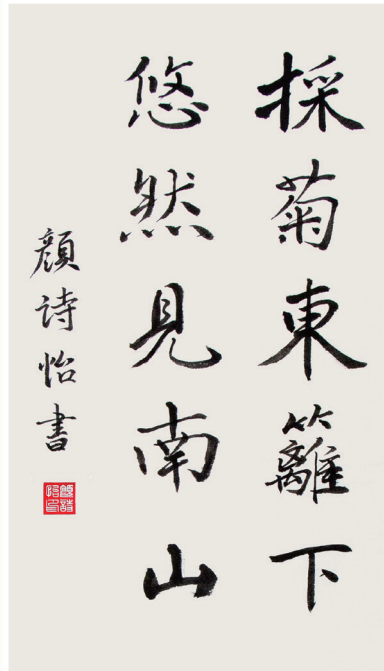 採菊東籬下
悠然見南山
顔詩怡書